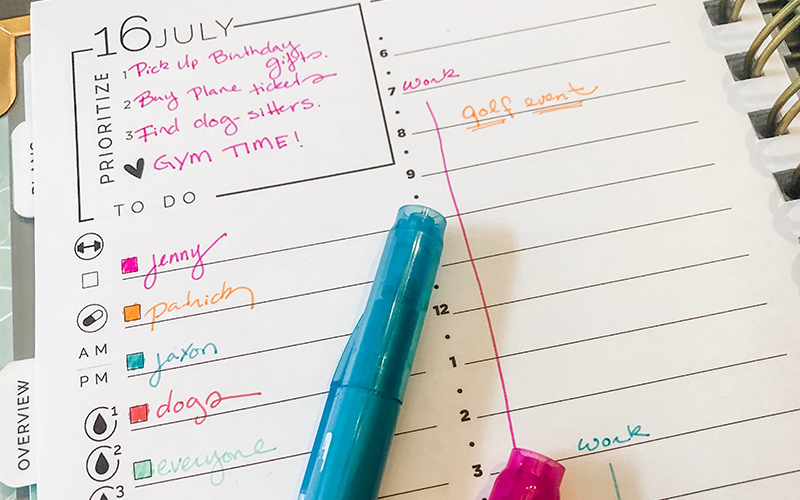 16 JULY
PRIORITIZE
1 Pick Up Birthday
gifts.
2 Buy Plane tickets
3 Find dog-sitters.
GYM TIME!
TO DO
jenny
patrick
AM
PM
jaxon
1
dogs
2
everyone
3
OVERVIEW
6
7 work
golf event
8
9
12
1
2
work
3